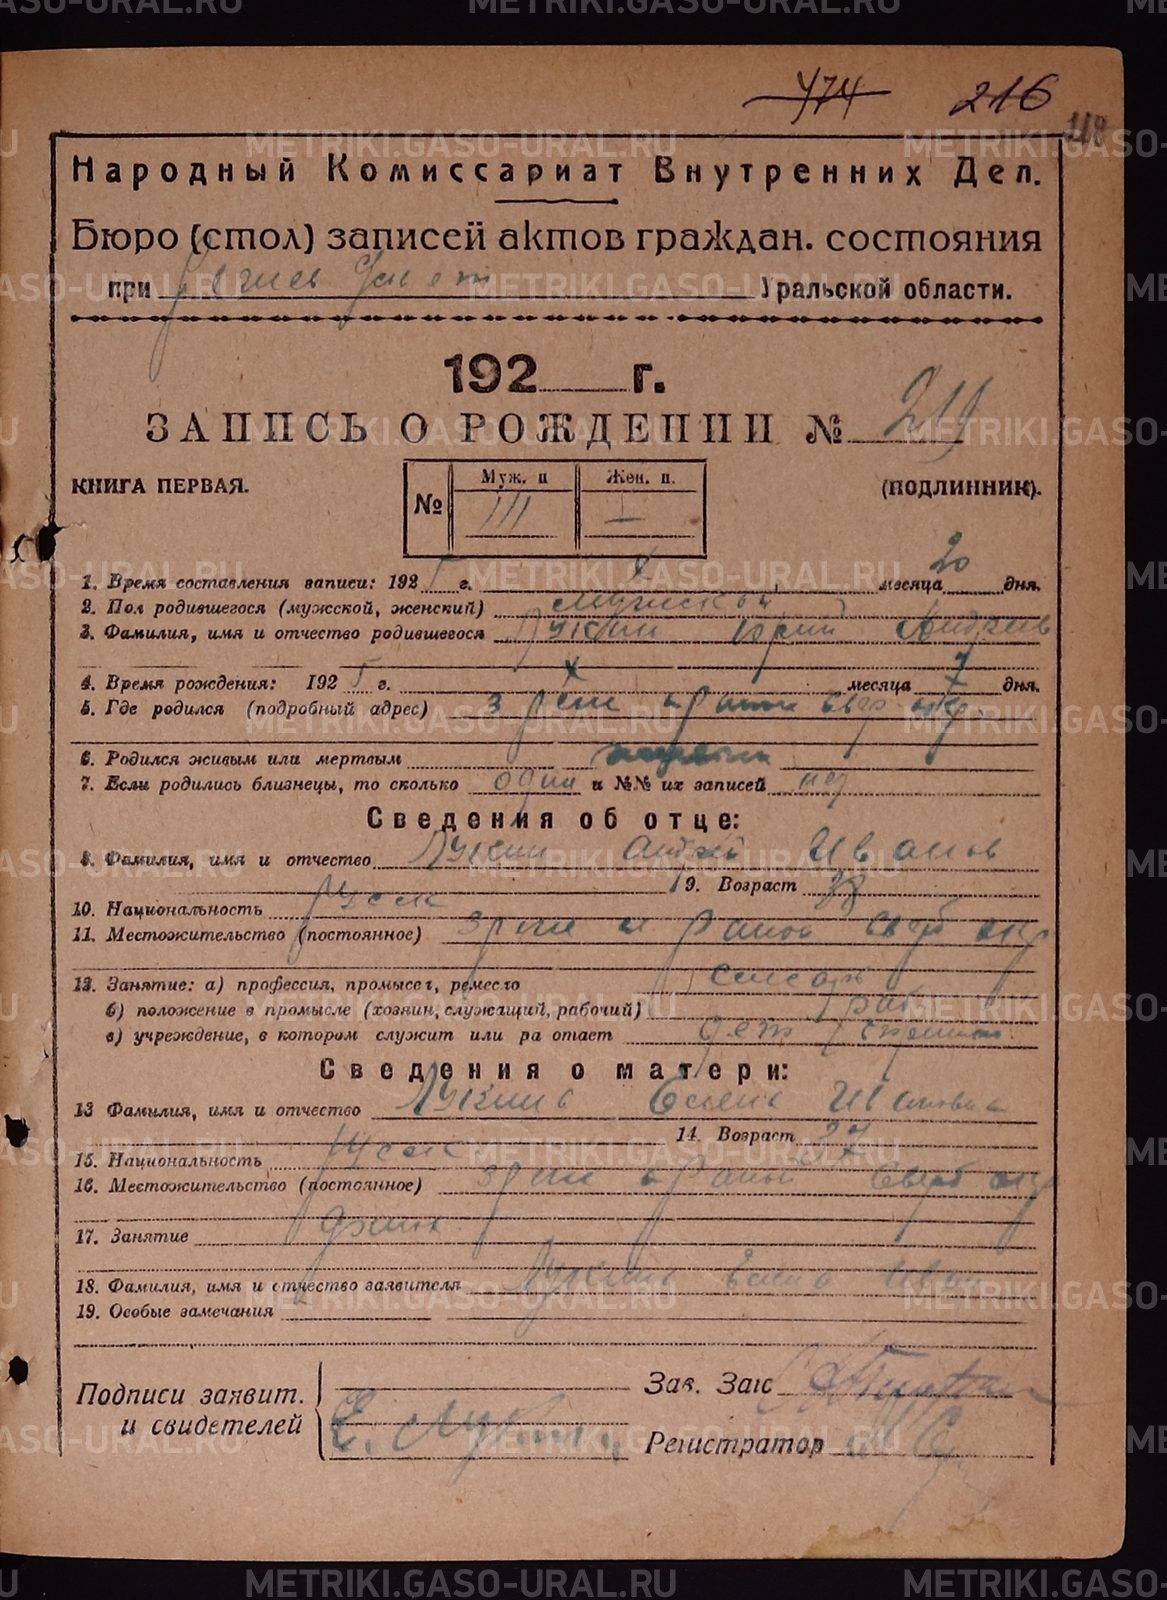 474 216
118
Народный Комиссариат Внутренних Дел.
Бюро (стол) записей актов граждан. состояния
при Уральской области.
192 г.
ЗАПИСЬ О РОЖДЕНИИ № 219
КНИГА ПЕРВАЯ. № Муж. п Жен. п. (ПОДЛИННИК).
III —
1. Время составления записи: 1925 г. X месяца 20 дня.
2. Пол родившегося (мужской, женский) мужской
3. Фамилия, имя и отчество родившегося Лукин Юрий Андреев
4. Время рождения: 1925 г. X месяца 7 дня.
5. Где родился (подробный адрес) район Свер окр.
6. Родился живым или мертвым
7. Если родились близнецы, то сколько один и №№ их записей нет
Сведения об отце:
8. Фамилия, имя и отчество Лукин Андрей Иванов
9. Возраст 38
10. Национальность русск
11. Местожительство (постоянное) район Сверд окр
12. Занятие: а) профессия, промысел, ремесло слесарь
б) положение в промысле (хозяин, служащий, рабочий) раб
в) учреждение, в котором служит или ра отает
Сведения о матери:
13 Фамилия, имя и отчество Лукина Елена Ивановна
14. Возраст 37
15. Национальность русск
16. Местожительство (постоянное) район Сверд окр
17. Занятие домох
18. Фамилия, имя и отчество заявителя Лукина Елена Иван
19. Особые замечания
Подписи заявит. Зав. Загс
и свидетелей Е. Лукина Регистратор
METRIKI.GASO-URAL.RU